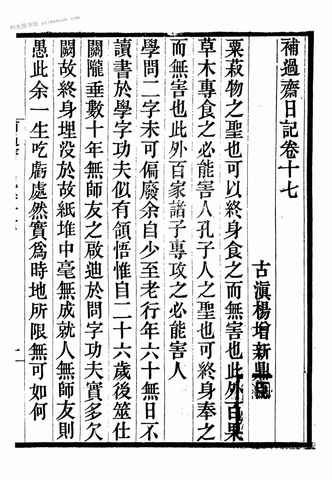 補過齋日記卷十七
古滇楊增新鼎臣
粟菽物之聖也可以終身食之而無害也此外百果
草木專食之必能害人孔子人之聖也可終身奉之
而無害也此外百家諸子專攻之必能害人
學問二字未可偏廢余自少至老行年六十無日不
讀書於學字功夫似有領悟惟自二十六歲後筮仕
關隴垂數十年無師友之啟迪於問字功夫實多欠
闕故終身埋没於故紙堆中毫無成就人無師友則
愚此余一生吃虧處然實為時地所限無可如何